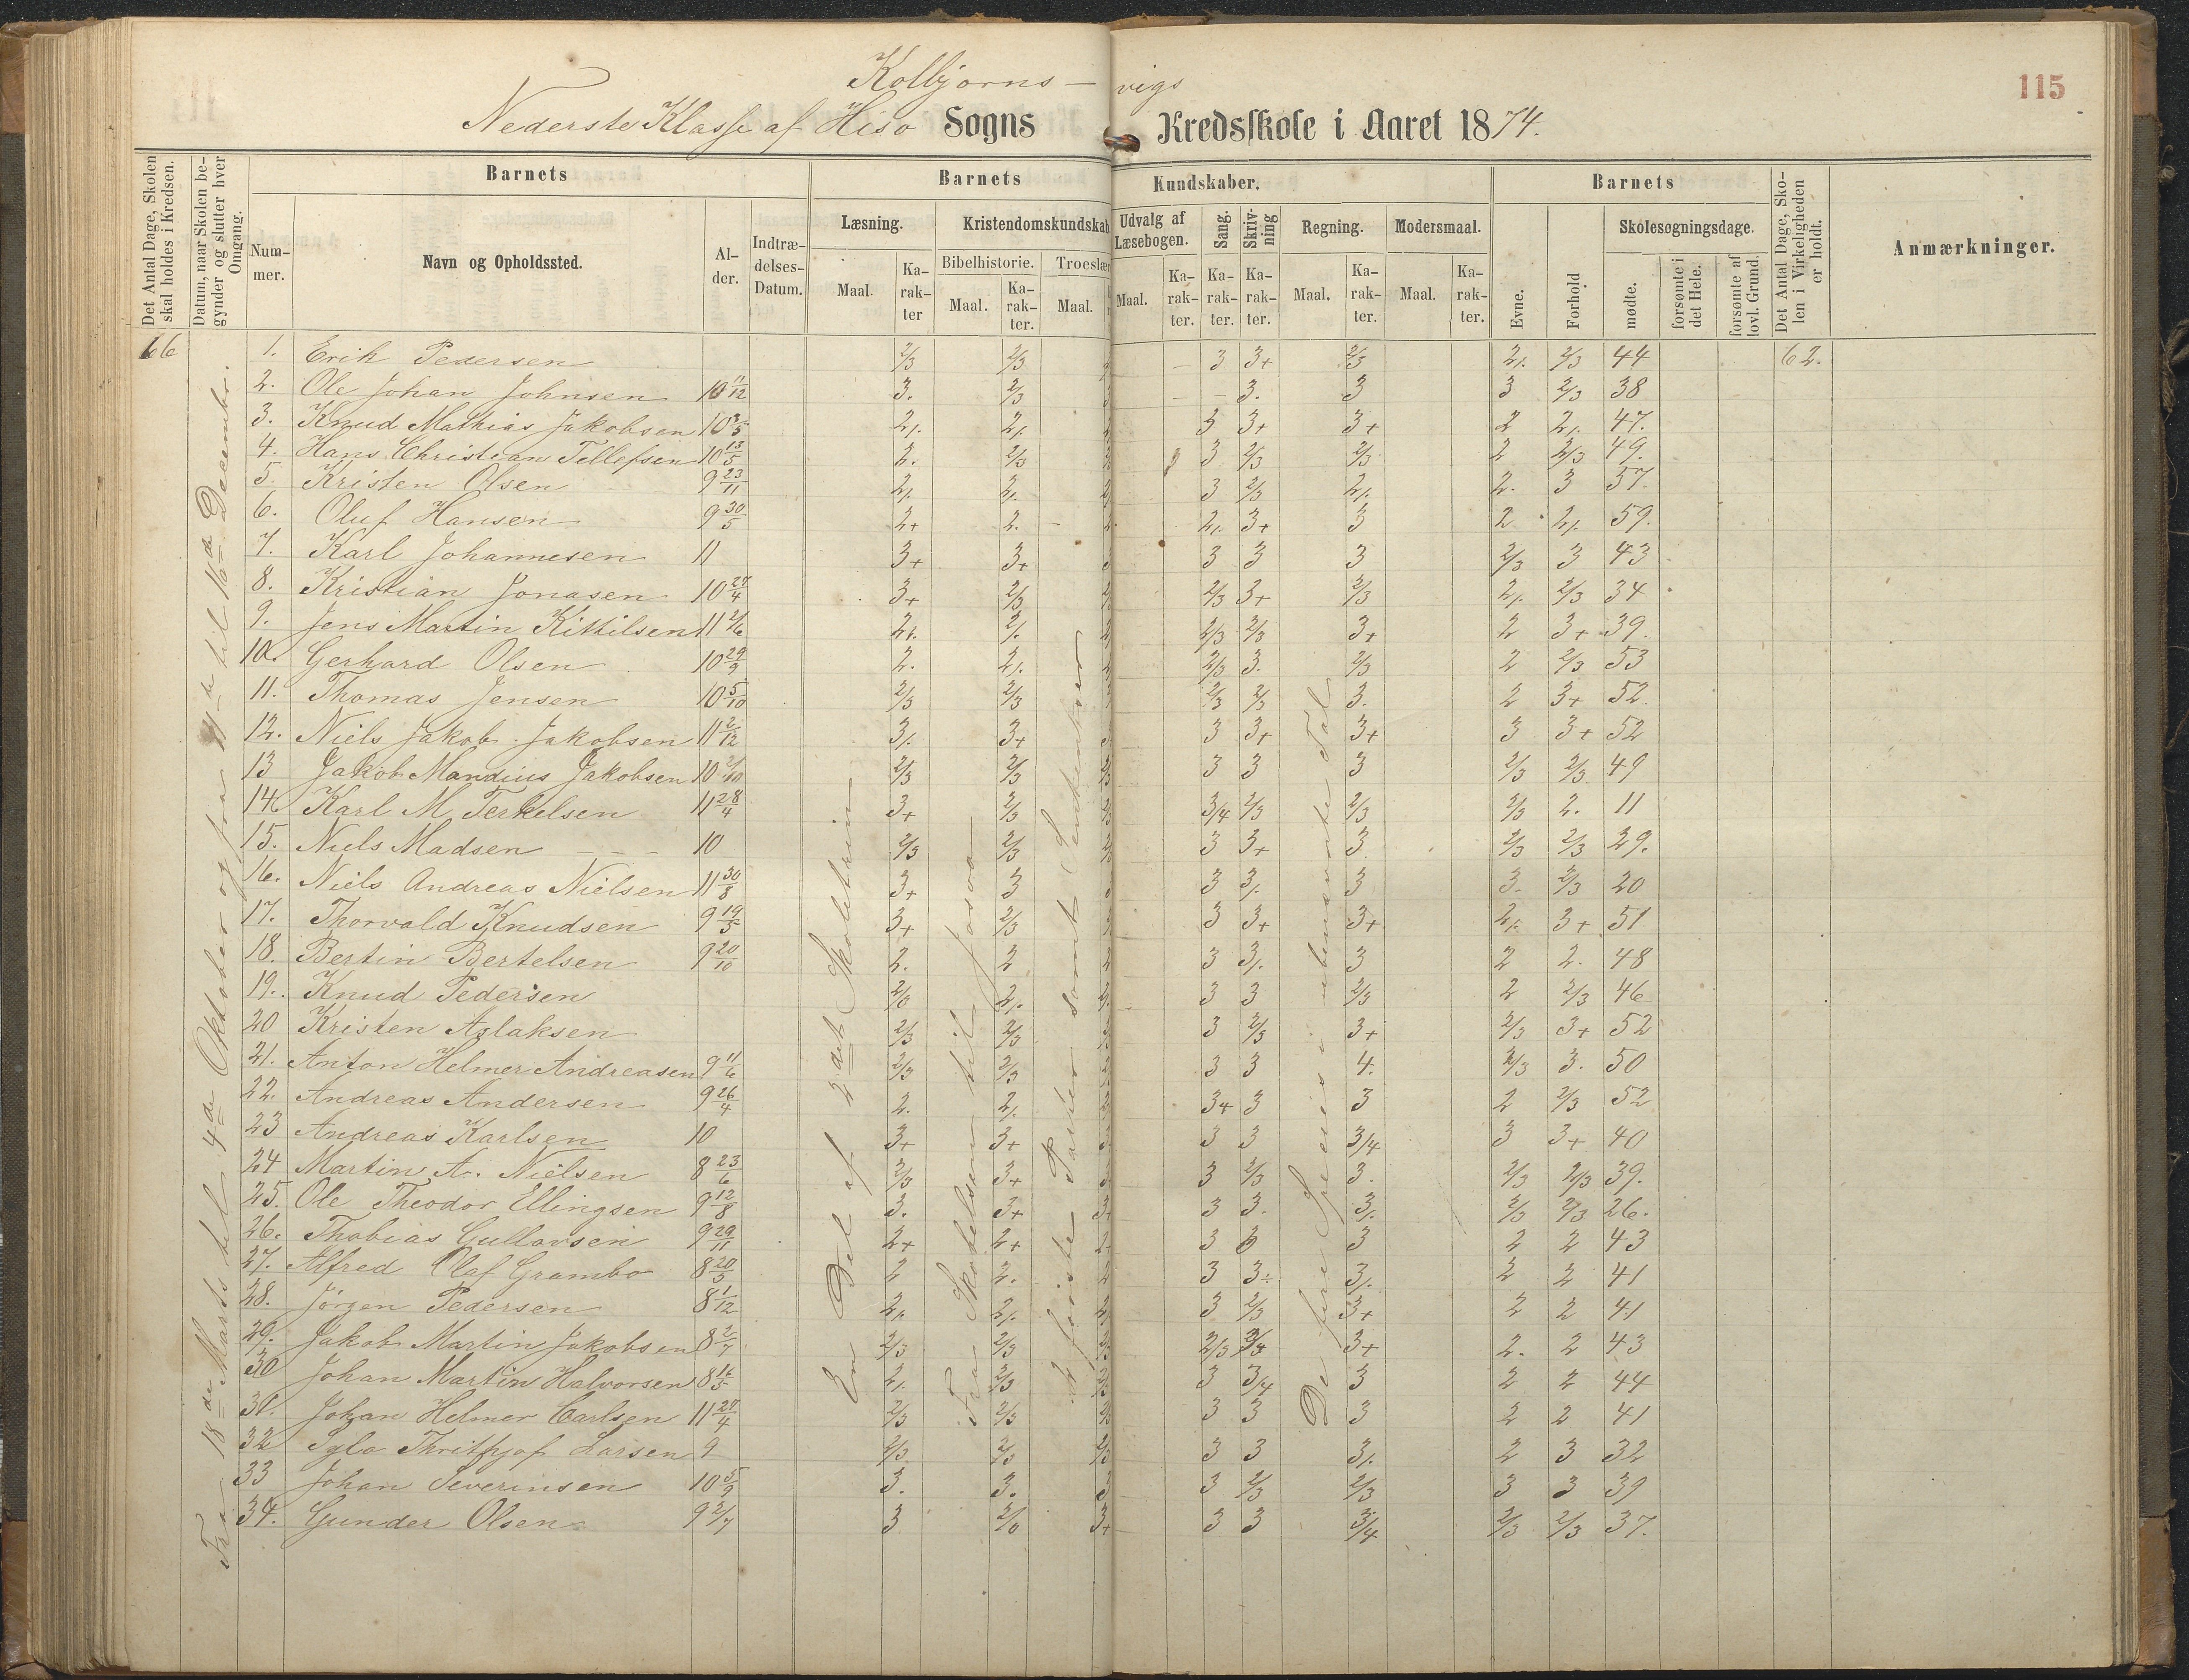 Kolbjørns-vigs
115
Nederste Klasse af Hisø Sogns Kredsskole i Aaret 1874.
Det Antal Dage, Skolen skal holdes i Kredsen.
Datum, naar Skolen begynder og slutter hver Omgang.
Barnets
Barnets
Kundskaber.
Barnets
Det Antal Dage, Skolen i Virkeligheden er holdt.
Anmærkninger.
Nummer.
Navn og Opholdssted.
Alder.
Indtrædelses-Datum.
Læsning.
Kristendomskundskab
Udvalg af Læsebogen.
Sang.
Skrivning
Regning.
Modersmaal.
Evne.
Forhold
Skolesøgningsdage.
Bibelhistorie.
Troeslær
Maal.
Karakter
Maal.
Karakter.
Maal.
Maal.
Karakter.
Karakter.
Karakter.
Maal.
Karakter.
Maal.
Karakter.
mødte.
forsømte i det Hele.
forsømte af lovl. Grund.
66
Fra 18de Marts til 4de Oktober og fra 11te til 16de Decembr.
En Del af 2det Skoletrin
Fra Skabelsen til Josva
De fire Species i ubenævnte Tal
1. Erik Pedersen 2/3 2/3 3 3+ 2/3 2/. 2/3 44 62.
2. Ole Johan Johnsen 10 11/12 3. 2/3 3. 3 3 2/3 38
3. Knud Mathias Jakobsen 10 3/5 2/. 2/. 3 3+ 3+ 2 2/. 47.
4. Hans Christian Tellefsen 10 13/5 2. 2/3 3 2/3 2/3 2 2/3 49.
5. Kristen Olsen 9 23/11 2/. 2/. 3 2/3 2/. 2. 3 57.
6. Oluf Hansen 9 30/5 2+ 2. 2/. 3+ 3 2 2/. 59.
7. Karl Johannesen 11 3+ 3+ 3 3 3 2/3 3 43
8. Kristian Jonasen 10 27/4 3+ 2/3 2/3 3+ 2/3 2/. 2/3 34
9. Jens Martin Kittilsen 11 2/6 2/. 2/. 2/3 2/3 3+ 2 3+ 39.
10. Gerhard Olsen 10 29/9 2. 2/. 2/3 3. 2/3 2 2/3 53
11. Thomas Jensen 10 5/10 2/3 2/3 2/3 2/3 3. 2 3+ 52.
12. Niels Jakob Jakobsen 11 2/12 3/. 3+ 3 3+ 3+ 3 3+ 52
13 Jakob Mandius Jakobsen 10 2/10 2/3 2/3 2/3 3 3 3 2/3 2/3 49
14. Karl M. Terkelsen 11 28/4 3+ 2/3 2/3 3/4 2/3 2/3 2/3 2. 11
15. Niels Madsen 10 2/3 2/3 3 3+ 3 2/3 2/3 29.
16. Niels Andreas Nielsen 11 30/8 3+ 3 3 3/. 3 3. 2/3 20
17. Thorvald Knudsen 9 19/5 3+ 2/3 3 3+ 3+ 2/. 3+ 51
18. Bertin Bertelsen 9 20/10 2. 2 3 3/. 3 2 2. 48
19. Knud Pedersen 2/3 2/. 3 3 2/3 2 2/3 46
20 Kristen Aslaksen 2/3 2/3 3 2/3 3+ 2/3 3+ 52
21. Anton Helmer Andreasen 9 11/6 2/3 2/3 3 3 4. 2/3 3. 50
22. Andreas Andersen 9 26/4 2. 2/. 3+ 3 3 2 2/3 52
23 Andreas Karlsen 10 3+ 3+ 3 3 3/4 3 3+ 40
24 Martin A. Nielsen 8 23/6 2/3 3+ 3 2/3 3. 2/3 2/3 39.
25. Ole Theodor Ellingsen 9 12/8 3. 3+ 3+ 3 3. 3/. 2/3 2/3 26.
26. Thobias Gullovsen 9 29/11 2+ 2+ 2+ 3 3 3 2 2 43
27. Alfred Olaf Grambo 8 20/5 2 2. 2 3 3÷ 3/. 2 2 41
28. Jørgen Pedersen 8 1/12 2/. 2/. 3 2/3 3+ 2 2 41
29. Jakob Martin Jakobsen 8 2/7 2/3 2/3 2/3 2/3 2/3 3+ 2. 2 43
30 Johan Martin Halvorsen 8 16/5 2/. 2/3 3 3/4 3 2 2 44
31. Johan Helmer Carlsen 11 27/4 2/3 2/3 3 3 3 2 2 41
32 Thritfjof Larsen 9 2/3 2/3 2/3 3 3 3/. 2 3 32
33 Johan Severinsen 10 5/9 3. 3. 3 3 2/3 2/3 3 3 39
34. Gunder Olsen 9 2/7 3 3+ 3 3 3/4 2/3 2/3 37.